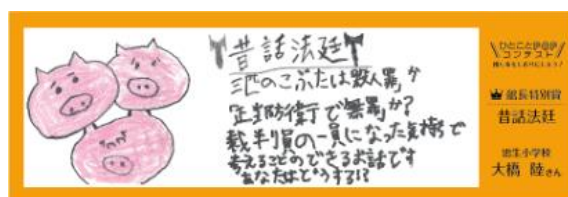 昔話法廷
三匹のこぶたは殺人罪か
正当防衛で無罪か?
裁判員の一員になった気持で
考えることのできるお話です
あなたはどうする!?
ひとことPOP
コンテスト
館長特別賞
昔話法廷
小学校
大橋 陸さん